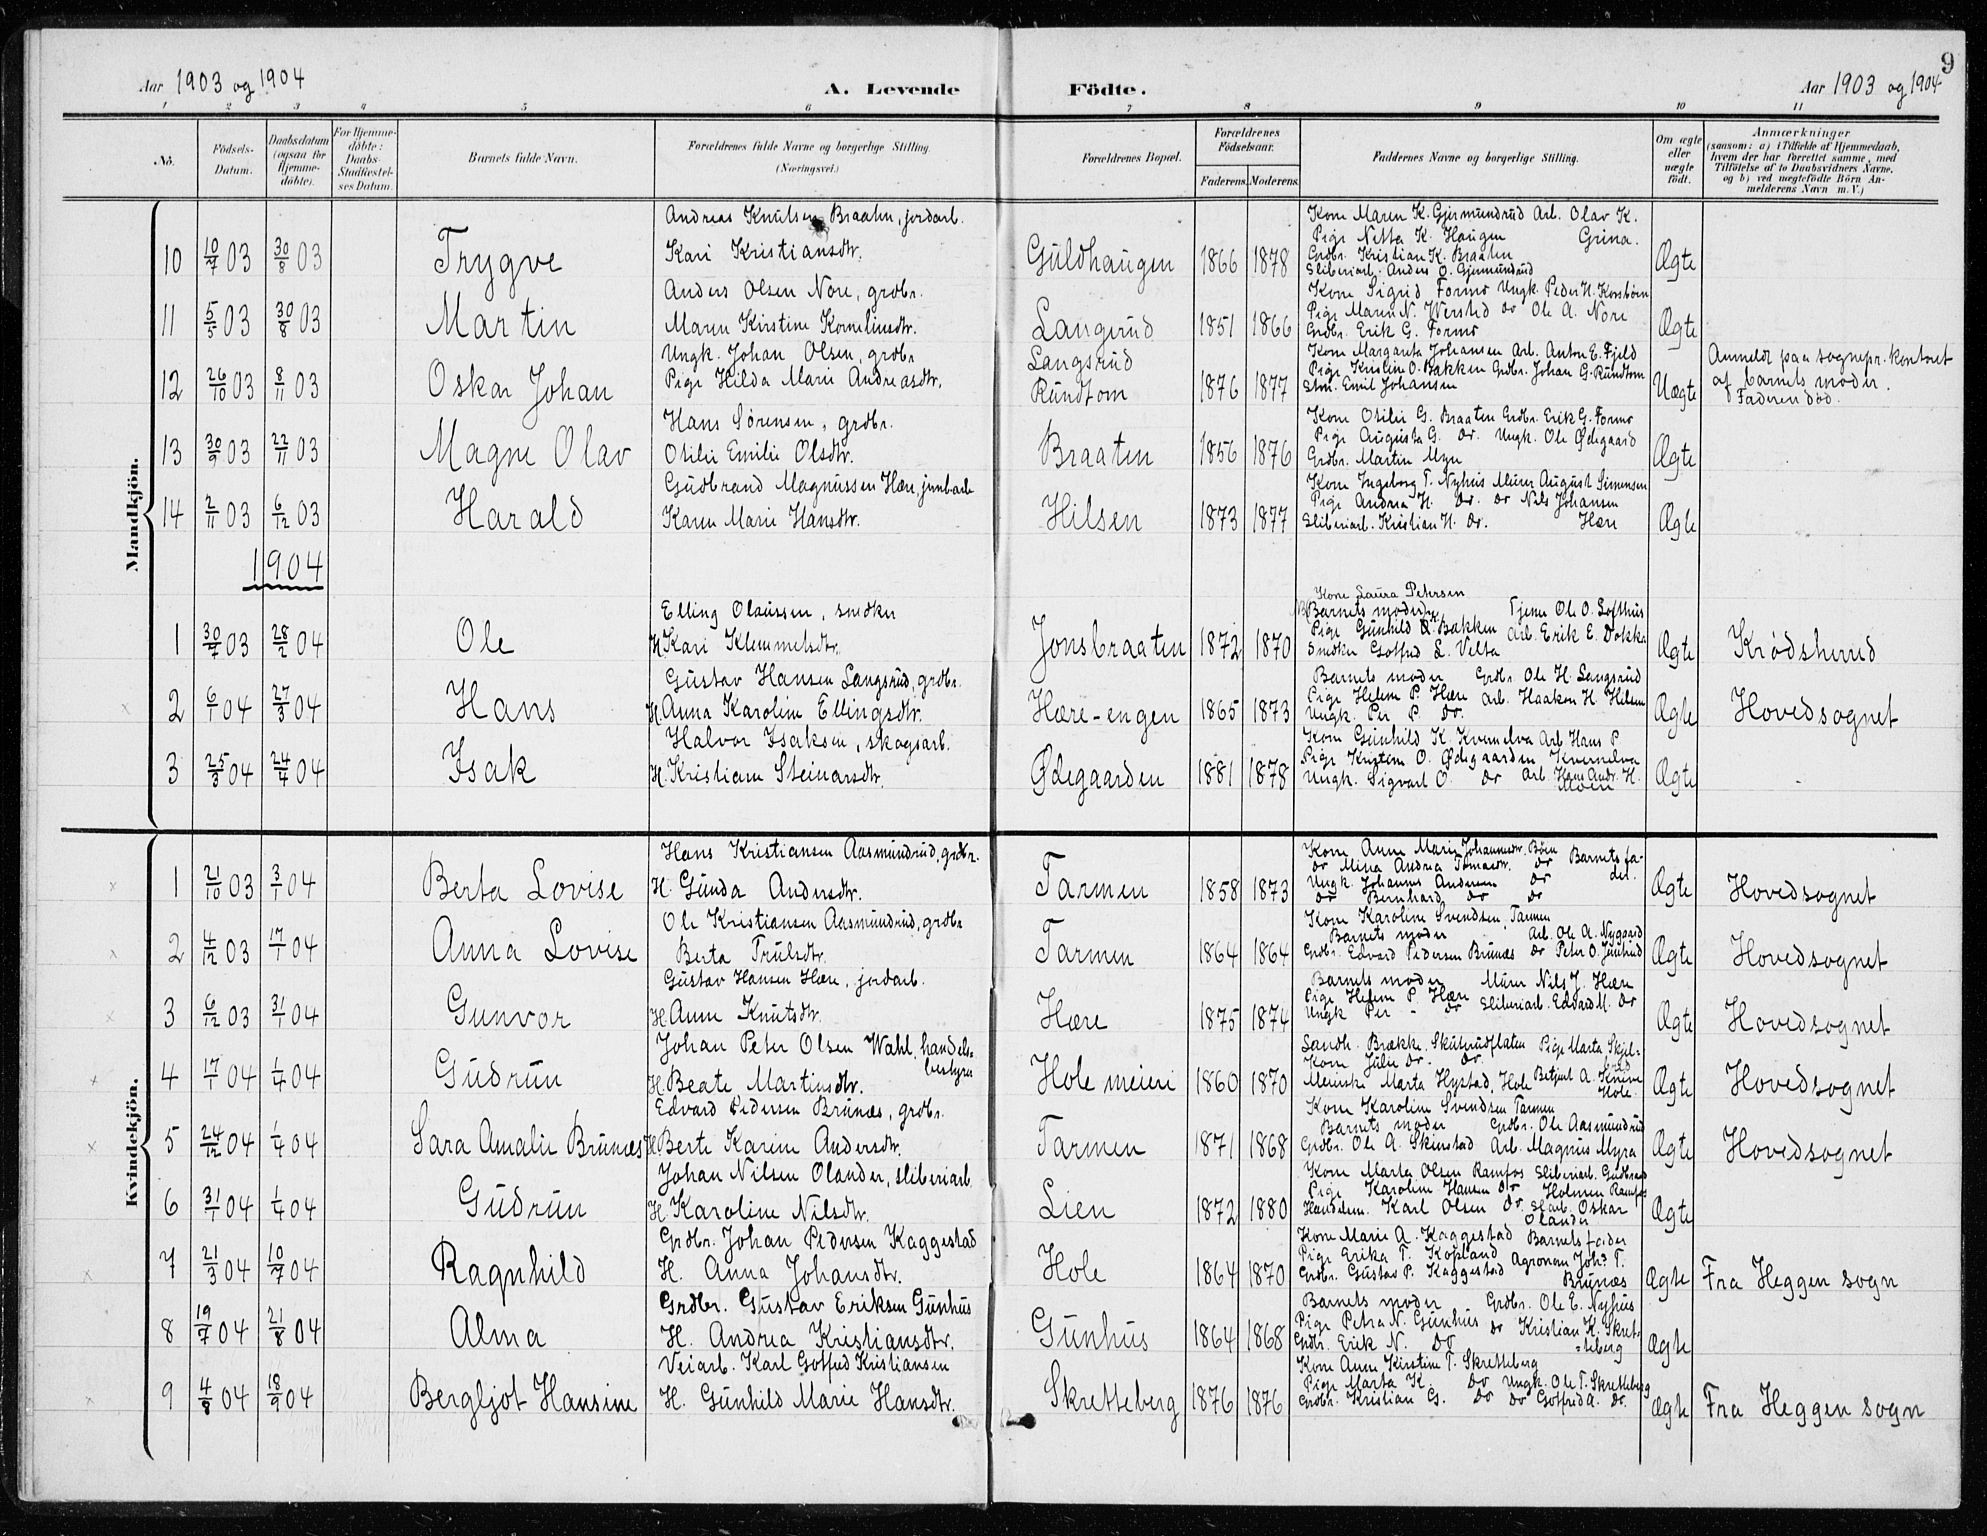 9
Aar 1903 og 1904 A. Levende Födte. Aar 1903 og 1904
1 2 3 4 5 6 7 8 9 10 11
No. Födsels-Datum. Daabsdatum (ogsaa for Hjemme-döbte). For Hjemme-döbte: Daabs-Stadfæstel-ses Datum. Barnets fulde Navn. Forældrenes fulde Navne og borgerlige Stilling. (Næringsvei.) Forældrenes Bopæl. Forældrenes Födselsaar. Faderens. Moderens. Faddernes Navne og borgerlige Stilling. Om ægte eller uægte födt. Anmærkninger (saasom: a) i Tilfælde af Hjemmedaab, hvem der har forrettet samme, med Tilföielse af to Daabsvidners Navne, og b) ved uægtefödte Börn An-melderens Navn m. V.)
Mandkjön.
Andreas Knutsen Braaten, jordarb. Kone Maren K. Gjermundrud Arb. Olav K.
Pige Netta K. Haugen Grina.
10 10/7 03 30/8 03 Trygve Kari Kristiansdtr. Guldhaugen 1866 1878 Grdbr. Kristian K. Braaten Ægte
Sliberiarb. Anders O. Gjermundrud
Anders Olsen Nore, grdbr. Kone Sigrid Formo Ungk. Peder N. Korsbøen
11 5/5 03 30/8 03 Martin Maren Kirstine Kornelinsdtr. Langerud 1851 1866 Pige Maren N. Wersted do Ole A. Nore Ægte
Grdbr. Erik G. Formo
Ungk. Johan Olsen, grdbr Langsrud Kone Margareta Johansen Arb. Anton E. Fjeld Anmeldt paa sognepr. kontoret
12 26/10 03 8/11 03 Oskar Johan Pige Hilda Marie Andreasdtr. Rundtom 1876 1877 Pige Kristin O. Bakken Grdbr. Johan G. Rundtom Uægte af barnets moder.
Emil Johansen Faderen død.
Hans Sørensen, grdbr. Kone Otilie G. Braaten Grdbr. Erik G. Formo
13 30/9 03 22/11 03 Magne Olav Otilie Emilie Olsdtr. Braaten 1856 1876 Pige Augusta G. do. Ungk. Ole Ødegaard Ægte
Grdbr. Martin Myre
Gudbrand Magnussen Hære, jernbarb Kone Ingeborg T. Nyhus Murer August Simensen
14 2/11 03 6/12 03 Harald Karen Marie Hansdtr. Hilsen 1873 1877 Pige Andrea H. do. do Nils Johansen Ægte
Sliberiarb. Kristian H. do. Hære
1904
Kone Laura Petersen
Elling Olaussen, snedker Barnets moder Tjener Ole O. Lofthus
1 30/7 03 28/2 04 Ole H. Kari Klemmetsdtr. Jonsbraaten 1872 1870 Pige Gunhild Bakken Arb. Erik E. Dokka Ægte Krødsherred
Snedker Gotfred L. Velta
Gustav Hansen Langsrud, grdbr. Barnets moder Grdbr. Ole H. Langsrud
2 6/1 04 27/3 04 Hans H. Anna Karoline Ellingsdtr. Hære-engen 1865 1873 Pige Helene P. Hære Arb. Haaken H. Hilsen Ægte Hovedsognet
Ungk. Per P. do.
Halvor Isaksen, skogsarb. Kone Gunhild K. Kvernelva Arb. Hans P.
3 25/3 04 24/4 04 Isak H. Kristiane Steinarsdtr. Ødegaarden 1881 1878 Pige Kirsten O. Ødegaarden Kvernelva Ægte
Ungk. Sigvart O. do Arb. Hans Andr. H. Moen
Kvindekjön.
Hans Kristiansen Aasmundrud, grdbr. Kone Anne Marie Johannesdtr. Børn Barnets fa-
do Mina Andrea Tomasdtr. do der.
1 21/10 03 3/1 04 Berta Lovise H. Gunda Andersdtr. Tarmen 1858 1873 Ungk. Johannes Andersen do Ægte Hovedsognet
do Bernhard do do
Ole Kristiansen Aasmundrud, grdbr Kone Karoline Svendsen, Tarmen
2 4/12 03 17/1 04 Anna Lovise Berta Trulsdtr. Tarmen 1864 1864 Barnets moder Arb. Ole A. Nygaard Ægte Hovedsognet
Grdbr. Edvard Pedersen Brunæs do Peter O. Juulrud
Gustav Hansen Hære, jordarb. Barnets moder Murer Nils J. Hære
3 6/12 03 31/1 04 Gunvor H. Anne Knutsdtr. Hære 1875 1874 Pige Helene P. Hære Sliberiarb. Edvard M. do Ægte Hovedsognet
Ungk Per - do
Johan Peter Olsen Wahl, handels=bestyrer Landh. Brække. Skuterudflaten Pige Marta Skjel=
4 17/1 04 1/4 04 Gudrun H. Beate Martinsdtr. Hole meieri 1860 1870 Kone Julie do. do. Ægte Hovedsognet
Meierske Marta Hystad, Hole Betjent A. Knive Hole.
Edvard Pedersen Brunæs, grdbr. Kone Karoline Svendsen Tarmen
Barnets moder Grdbr. Ole Aasmundrud
5 24/12 04 1/4 04 Sara Amalie Brunæs H. Berte Karine Andersdtr. Tarmen 1871 1868 Grdbr. Ole A. Skinstad Arb. Magnus Myra Ægte Hovedsognet
Johan Nilsen Olander, sliberiarb. Kone Marta Olsen Ramfos Sliberiarb. Gudbrand
6 31/1 04 1/4 04 Gudrun H. Karoline Nilsdtr. Lien 1872 1880 Pige Karoline Hansen do Holmen Ramfos Ægte
Handelsm. Karl Olsen do Oskar Olander
Grdbr. Johan Pedersen Kaggestad Kone Marie A. Kaggestad Barnets fader
7 21/3 04 10/7 04 Ragnhild H. Anna Johansdtr. Hole 1864 1870 Pige Erika T. Kopland Agronom Johs. T. Ægte Fra Heggen sogn
Grdbr. Gustav P. Kaggestad Brunæs
Grdbr. Gustav Eriksen Gunhus Barnets moder Grdbr. Ole E. Nyhus
8 19/7 04 21/8 04 Alma H. Andrea Kristiansdtr. Gunhus 1864 1868 Pige Petra N. Gunhus do Kristian K. Skret= Ægte
Grdbr. Erik N. do =teberg
Veiarb. Karl Gotfred Kristiansen Kone Anne Kirstine T. Skretteberg
9 4/8 04 18/9 04 Bergljot Hansine H. Gunhild Marie Hansdtr. Skretteberg 1876 1876 Pige Marta K. do Ungk. Ole T. Skretteberg Ægte Fra Heggen sogn
Grdbr. Kristian G. do do Gotfred A. do.